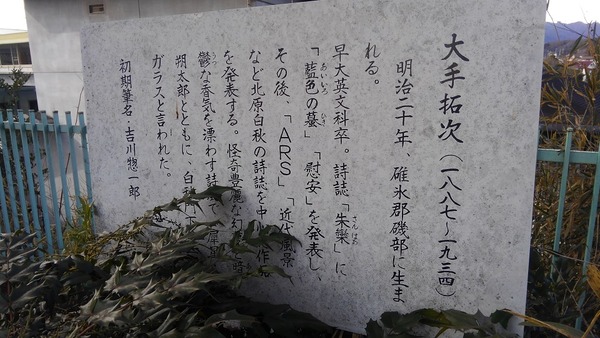 大手拓次(一八八七〜一九三四)
明治二十年、碓氷郡磯部に生ま
れる。
早大英文科卒。詩誌「朱欒」に、
「藍色の墓」「慰安」を発表し、
その後、「ARS」「近代風景」
など北原白秋の詩誌を中 作品
を発表する。怪奇豊麗な幻 暗
鬱な香気を漂わす詩 犀星
朔太郎とともに、白秋門
ガラスと言われた。
初期筆名・吉川惣一郎